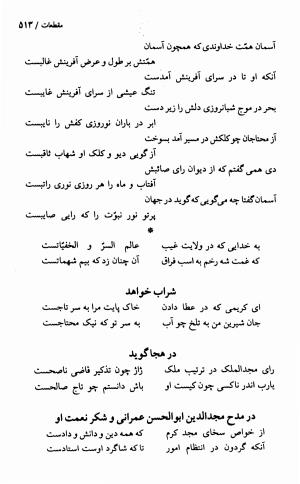 مقطعات / ۵۱۳
آسمان همّت خداوندی که همچون آسمان
همّتش بر طول و عرض آفرینش غالبست
آنکه او تا در سرای آفرینش آمدست
تنگ عیشی از سرای آفرینش غایبست
بحر در موج شبانروزی دلش را زیر دست
ابر در باران نوروزی کفش را نایبست
از محتاجان چو کلکش در مسیر آمد بسوخت
آز گویی دیو و کلک او شهاب ثاقبست
دی همی گفتم که از دیوان رای صائبش
آفتاب و ماه را هر روز نوری راتبست
آسمان گفتا چه می‌گویی که گوید در جهان
پرتو نور نبوّت را که رایی صایبست
*
به خدایی که در ولایت غیب    عالم السرّ و الخفیّاتست
که غمت شه رخم به اسب فراق    آن چنان زد که بیم شهماتست
شراب خواهد
ای کریمی که در عطا دادن    خاک پایت مرا به سر تاجست
جان شیرین من به تلخ چو آب    به سر تو که نیک محتاجست
در هجا گوید
رای مجدالملک در ترتیب ملک    ژاژ چون تذکیر قاضی ناصحست
یارب اندر ناکسی چون کیست او    باش دانستم چو تاج صالحست
در مدح مجدالدین ابوالحسن عمرانی و شکر نعمت او
از خواص سخای مجد کرم    که همه دین و دانش و دادست
آنکه گردون در انتظام امور    تا که شاگرد اوست استادست